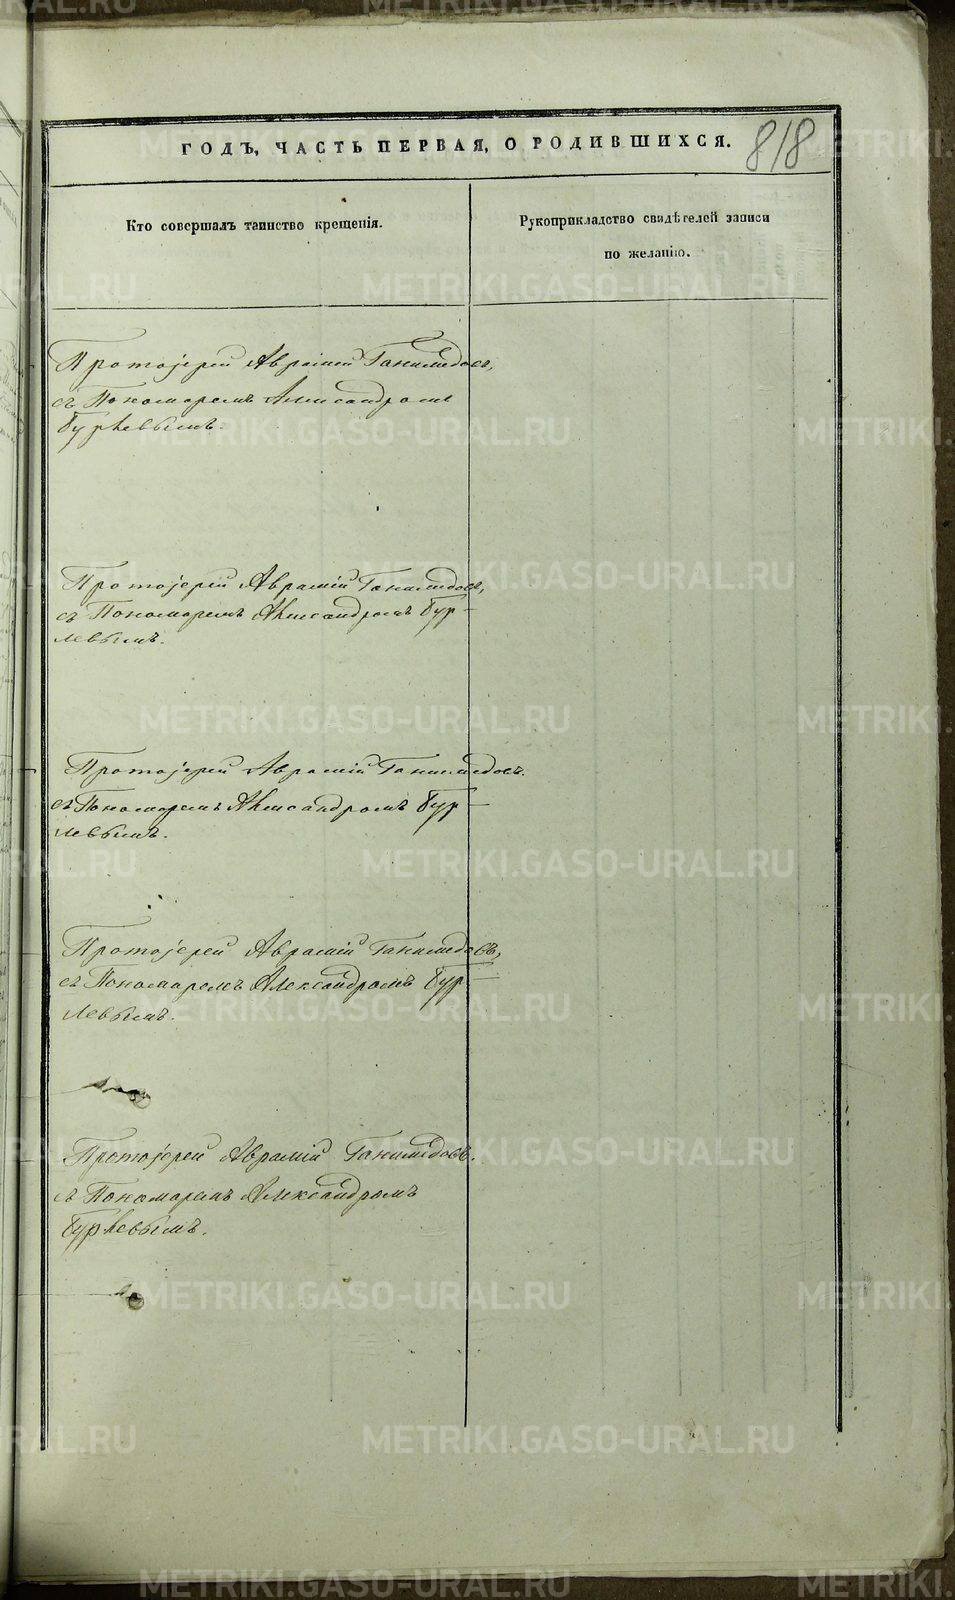 ГОДЪ, ЧАСТЬ ПЕРВАЯ, О РОДИВШИХСЯ.
818
Кто совершалъ таинство крещенія.
Рукоприкладство свидѣтелей записи
по желанію.
Протоіерей Аврамій Ганимедовъ,
съ Пономаремъ Александромъ
Бурлевымъ.
Протоіерей Аврамій Ганимедовъ,
съ Пономаремъ Александромъ Бур-
левымъ.
Протоіерей Аврамій Ганимедовъ.
съ Пономаремъ Александромъ Бур-
левымъ.
Протоіерей Аврамій Ганимедовъ,
съ Пономаремъ Александромъ Бур-
левымъ.
Протоіерей Аврамій Ганимедовъ.
съ Пономаремъ Александромъ
Бурлевымъ.
METRIKI.GASO-URAL.RU